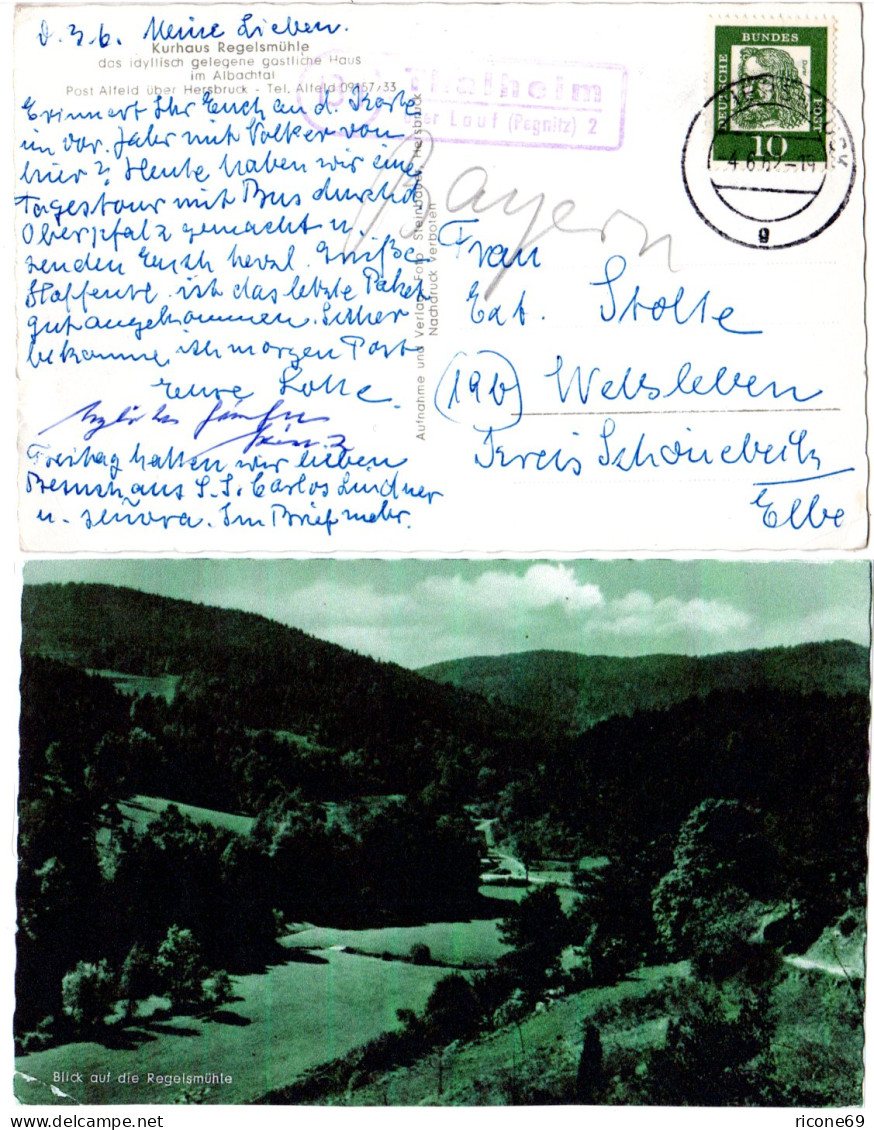 d. 3.6. Meine Lieben.
Kurhaus Regelsmühle
das idyllisch gelegene gastliche Haus
im Albachtal
Post Alfeld über Hersbruck - Tel. Alfeld 09157/33
Erinnert Ihr Euch an d. Karte
im vor. Jahr mit Volker von
hier? Heute haben wir eine
Tagestour mit Bus durch d.
Oberpfalz gemacht u.
senden Euch herzl. Grüße.
Hoffentl. ist das letzte Paket
gut angekommen. Sicher
bekomme ich morgen Post
Eure Lotte.
Freitag hatten wir lieben
Besuch aus Carlos Lindner
u. señora. Im Brief mehr.
Thalheim
über Lauf (Pegnitz) 2
Bayern
DEUTSCHE BUNDESPOST
10
4.6.62-19
g
Aufnahme und Verlag: Foto Steinbauer, Hersbruck
Nachdruck verboten
Frau
Stolte
(19b) Welsleben
Kreis Schönebeck
Elbe
Blick auf die Regelsmühle
delcampe.net
ricone69